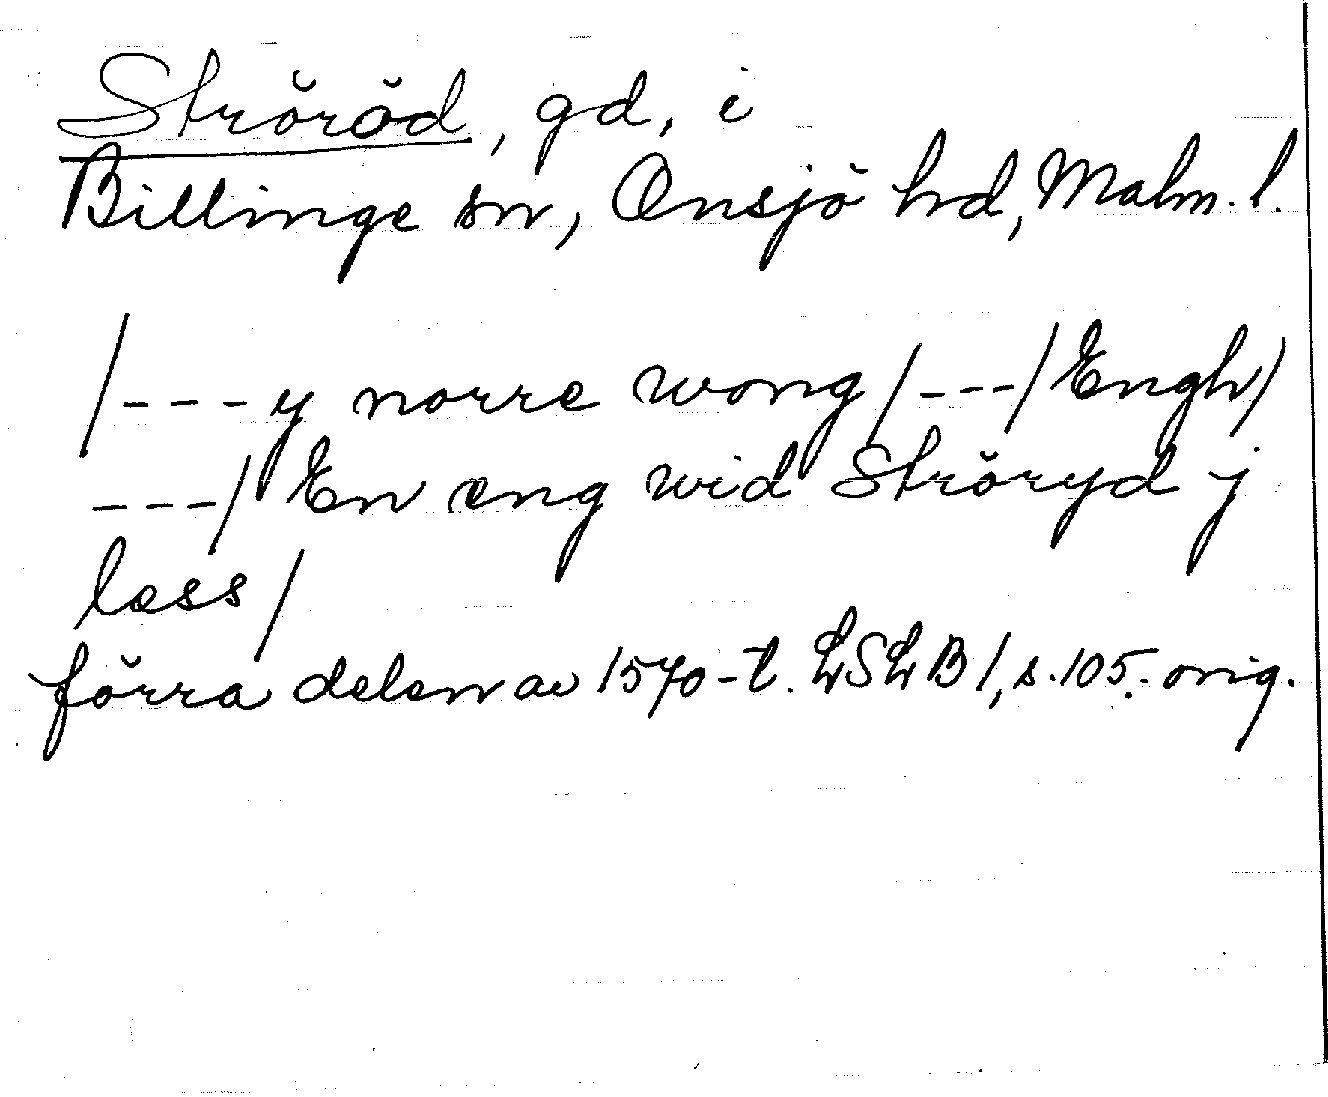 Ströröd, gd, i
Billinge sn, Onsjö hd, Malm. l.
/---y norre wong/---/Engh/
---/En eng wid Ströryd j
læss/
förra delen av 1570-t. LSLB 1, s. 105. orig.